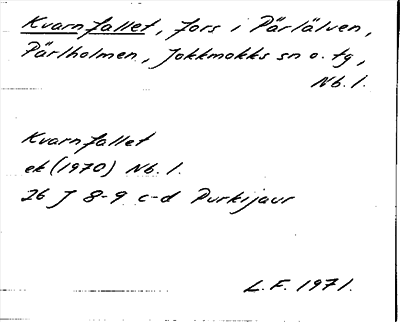 Kvarnfallet, fors i Pärlälven,
Pärlholmen, Jokkmokks sn o. tg,
Nb. l.
Kvarnfallet
ek (1970) Nb. l.
26 J 8-9 c-d Purkijaur
L.F. 1971.